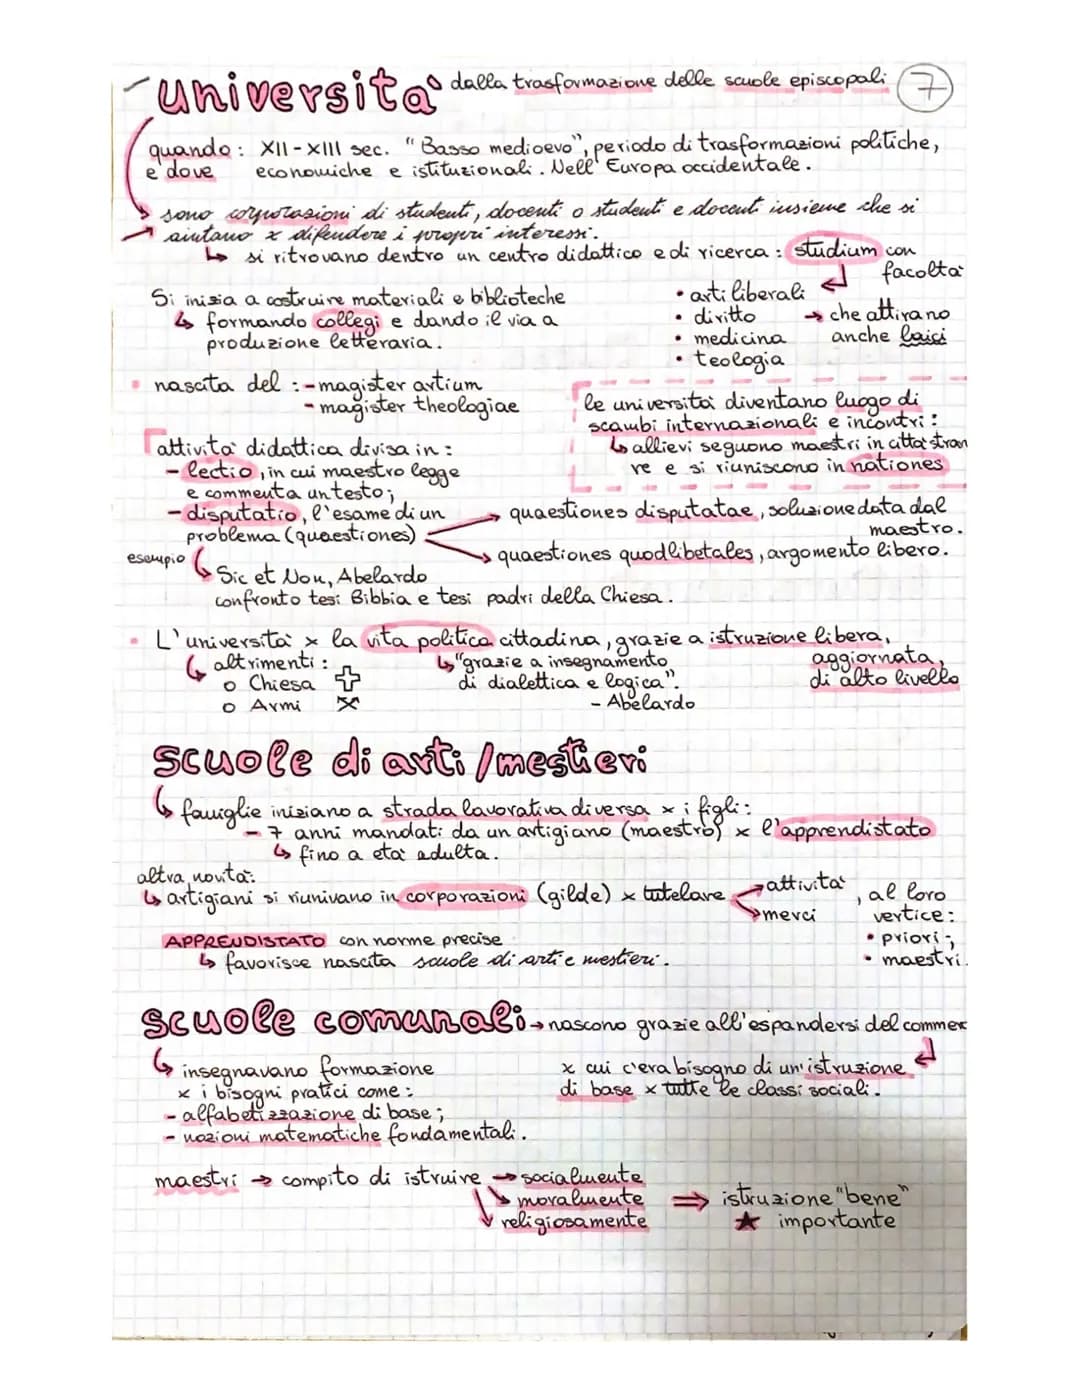 università dalla trasformazione delle scuole episcopali 7
quando: XII-XIII sec. "Basso medioevo", periodo di trasformazioni politiche,
e dove economiche e istituzionali. Nell'Europa occidentale.
sono corporazioni di studenti, docenti o studenti e docenti insieme che si
aiutano x difendere i propri interessi.
si ritrovano dentro un centro didattico e di ricerca: studium con
facoltà
Si inizia a costruire materiali e biblioteche
formando collegi e dando il via a
produzione letteraria.
• arti liberali
• diritto
• medicina
• teologia
→ che attirano
anche laici
• nascita del: - magister artium
- magister theologiae
le università diventano luogo di
scambi internazionali e incontri:
allievi seguono maestri in città stran
re e si riuniscono in nationes
attività didattica divisa in:
- lectio, in cui maestro legge
e commenta un testo;
- disputatio, l'esame di un
problema (quaestiones)
→ quaestiones disputatae, soluzione data dal
maestro.
→ quaestiones quodlibetales, argomento libero.
esempio
Sic et Non, Abelardo
confronto tesi Bibbia e tesi padri della Chiesa.
• L'università x la vita politica cittadina, grazie a istruzione libera,
aggiornata,
di alto livello
altrimenti:
o Chiesa
o Armi
"grazie a insegnamento
di dialettica e logica".
- Abelardo
scuole di arti/mestieri
famiglie iniziano a strada lavorativa diversa x i figli:
- 7 anni mandati da un artigiano (maestro) x l'apprendistato
fino a età adulta.
altra novità:
artigiani si riunivano in corporazioni (gilde) x tutelare
attività
merci
, al loro
vertice:
• priori;
• maestri.
APPRENDISTATO con norme precise
favorisce nascita scuole di arti e mestieri.
scuole comunali → nascono grazie all'espandersi del commer
x cui c'era bisogno di un'istruzione
di base x tutte le classi sociali.
insegnavano formazione
x i bisogni pratici come:
- alfabetizzazione di base;
- nozioni matematiche fondamentali.
maestri → compito di istruire → socialmente
moralmente
religiosamente
⇒ istruzione "bene"
★ importante